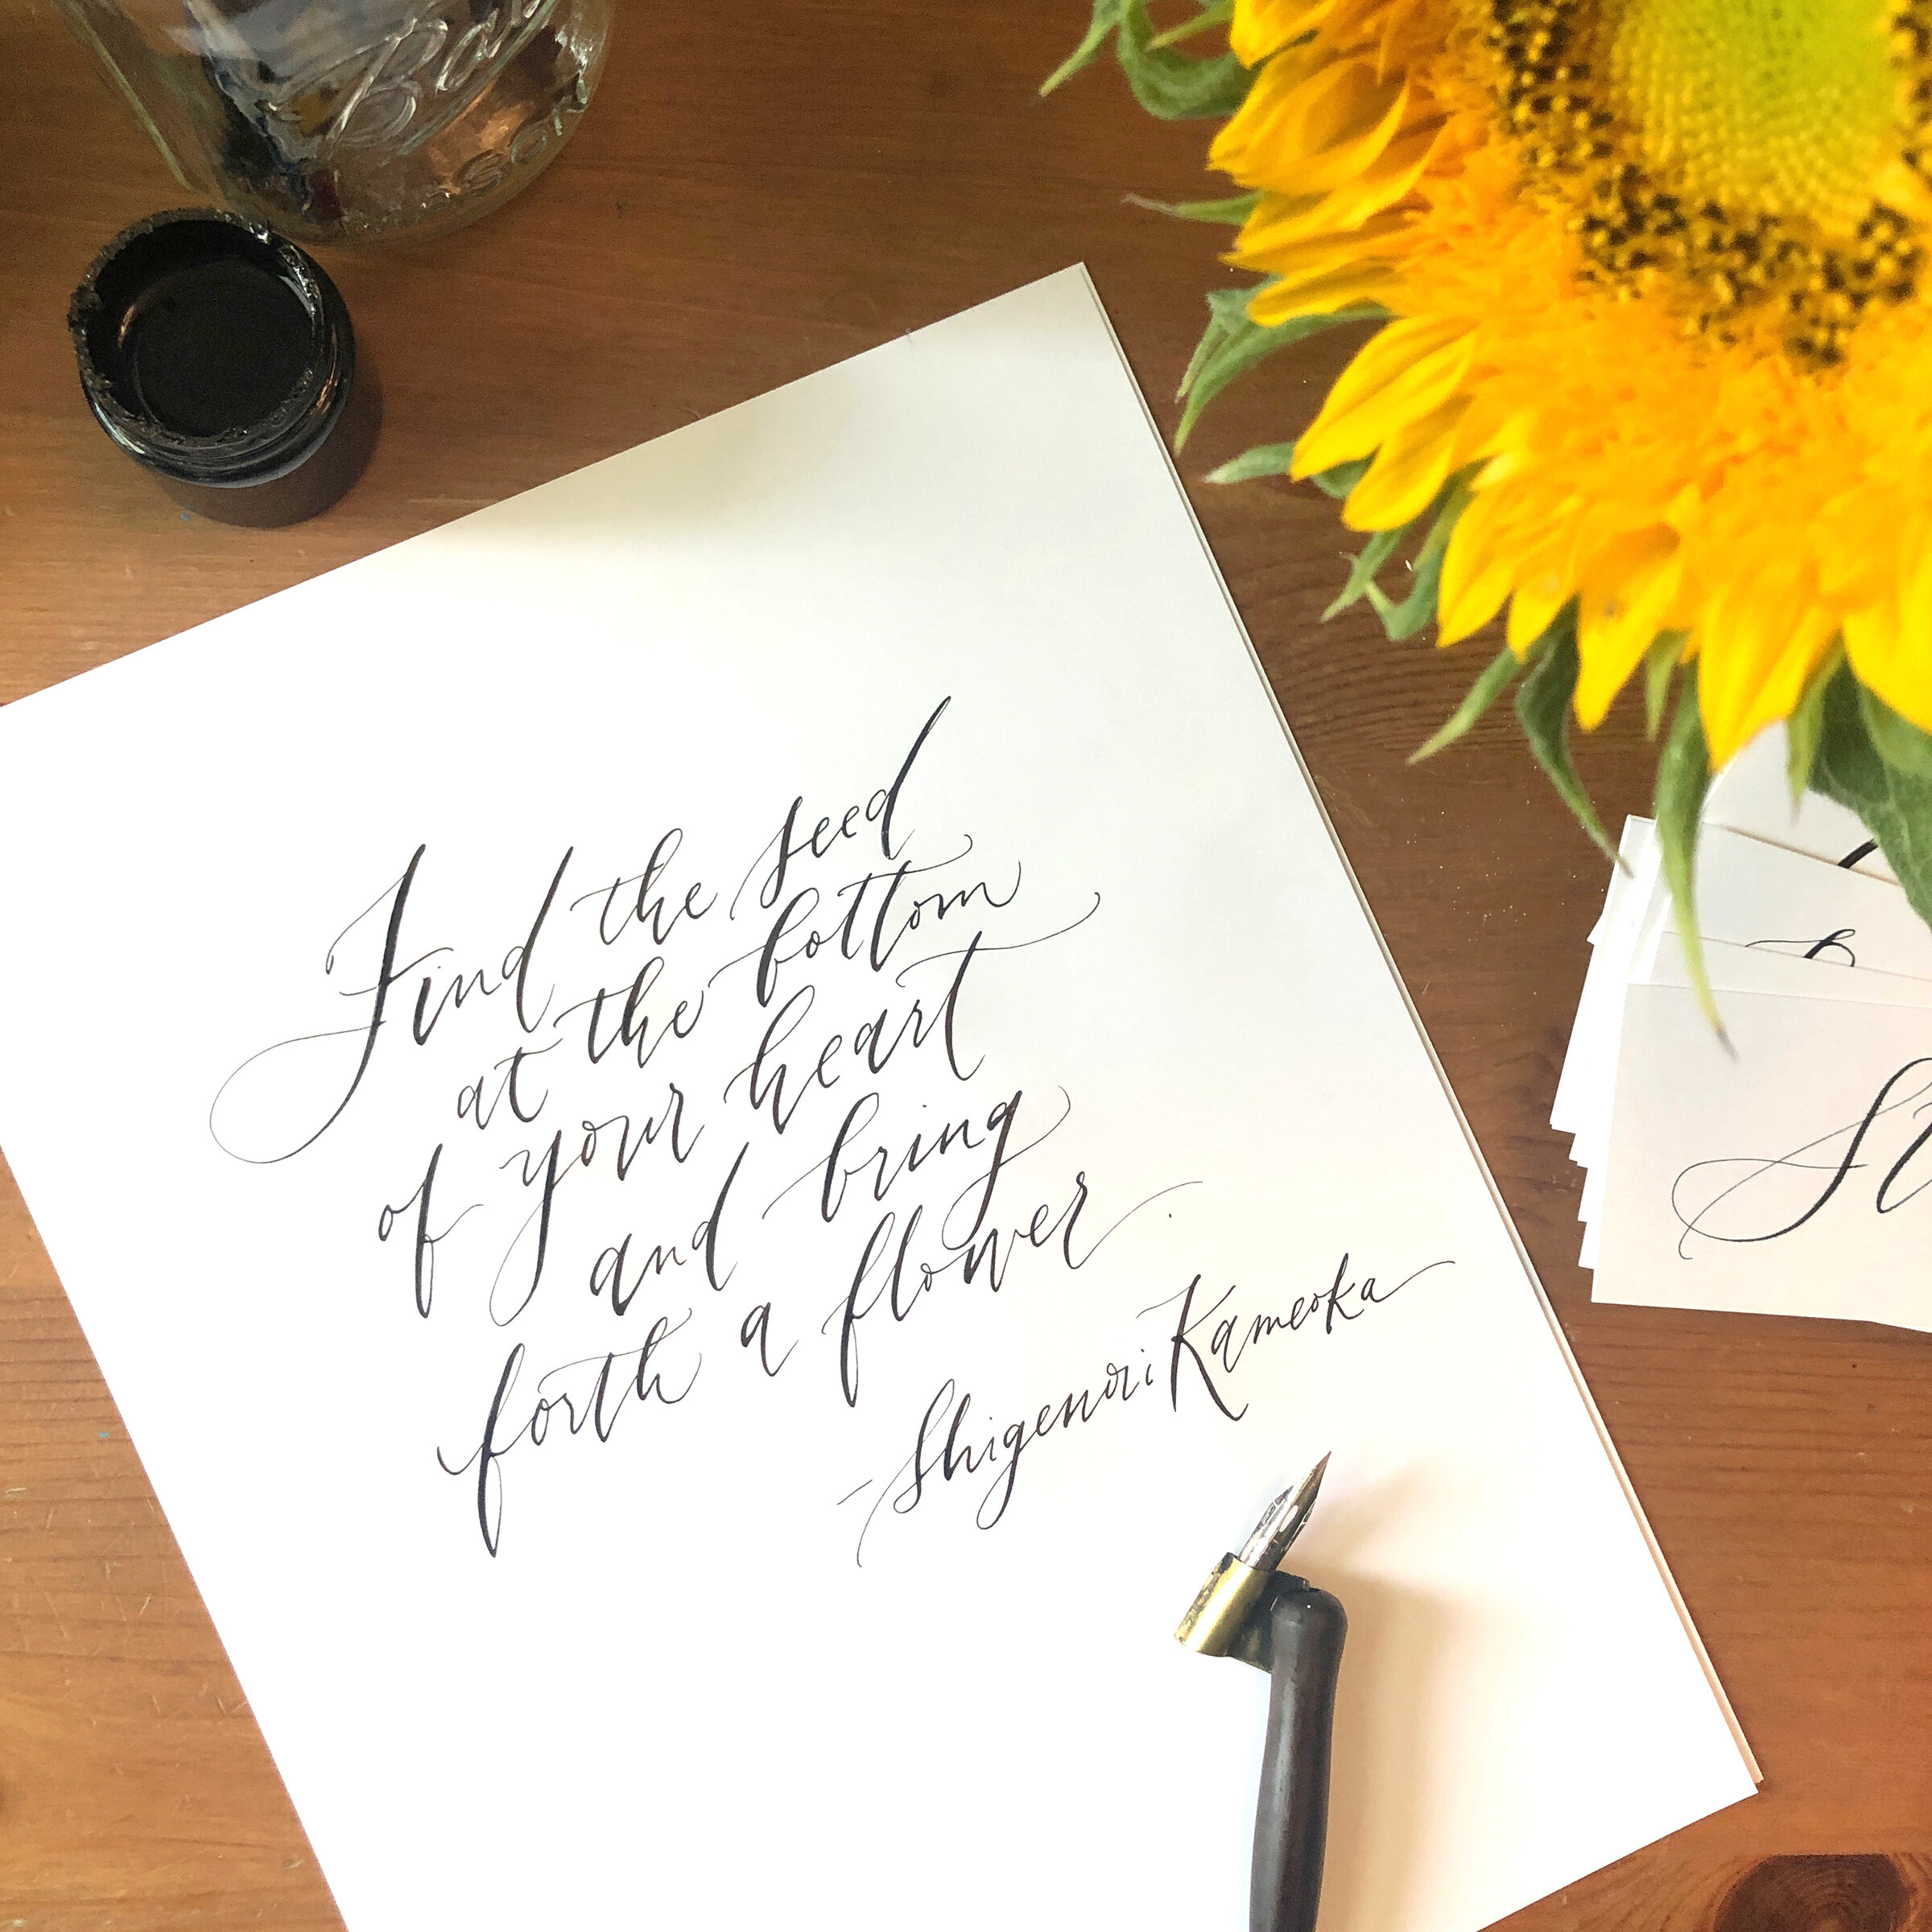 Ball
Mason
Find the seed
at the bottom
of your heart
and bring
forth a flower.
- Shigenori Kameoka